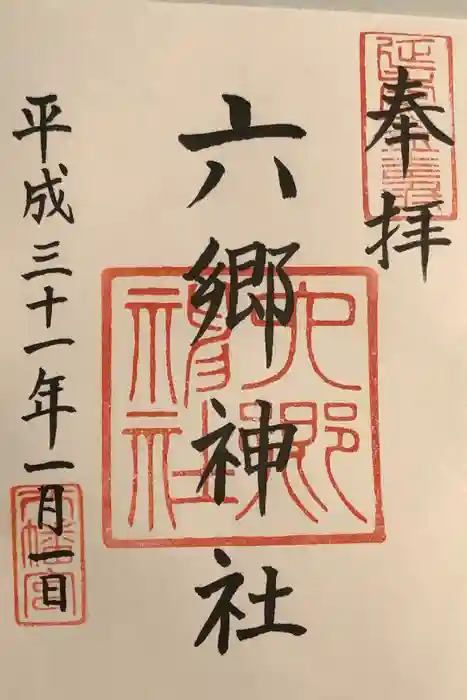 奉拝
六郷神社
平成三十一年一月一日
六郷神社